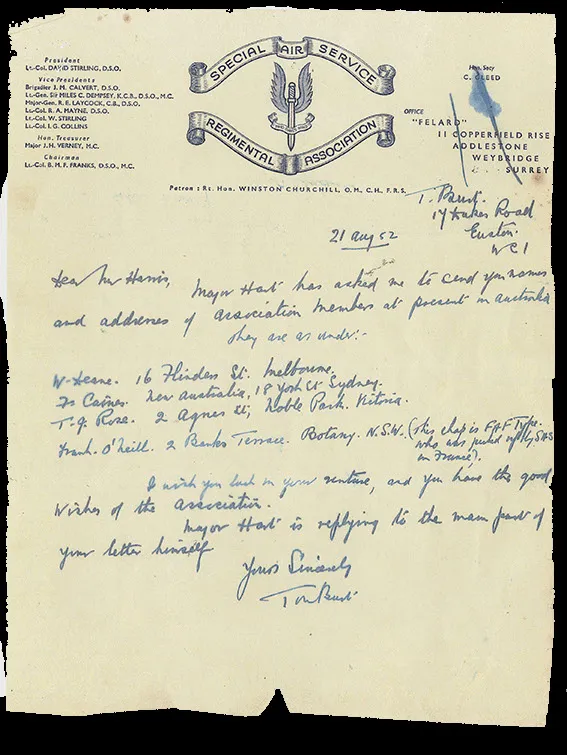 President
Lt.-Col. DAVID STIRLING, D.S.O.
Vice Presidents
Brigadier J. M. CALVERT, D.S.O.
Lt.-Gen. Sir MILES C. DEMPSEY, K.C.B., D.S.O., M.C.
Major-Gen. R. E. LAYCOCK, C.B., D.S.O.
Lt.-Col. R. A. MAYNE, D.S.O.
Lt.-Col. W. STIRLING
Lt.-Col. I. G. COLLINS
Hon. Treasurer
Major J. H. VERNEY, M.C.
Chairman
Lt.-Col. B. M. F. FRANKS, D.S.O., M.C.
SPECIAL AIR SERVICE
REGIMENTAL ASSOCIATION
Patron: Rt. Hon. WINSTON CHURCHILL, O.M., C.H., F.R.S.
Hon. Secy
C. GLEED
OFFICE
"FELARD"
11 COPPERFIELD RISE
ADDLESTONE
WEYBRIDGE
SURREY
T. Burt.
17 Dukes Road
Euston.
WC1
21 Aug 52
Dear Mr Harris,
Major Hart has asked me to send you names
and addresses of Association Members at present in Australia
They are as under:-
16 Flinders St. Melbourne.
New Australia, 18 York St Sydney.
T. G. Rose. 2 Agnes St, Noble Park. Victoria.
Frank. O'Neill. 2 Banks Terrace. Botany. N.S.W. (This chap is FAF Type.
who was picked up by SAS
in France).
I wish you luck in your venture, and you have the good
wishes of the Association.
Major Hart is replying to the main part of
your letter himself
Yours Sincerely
Tom Burt